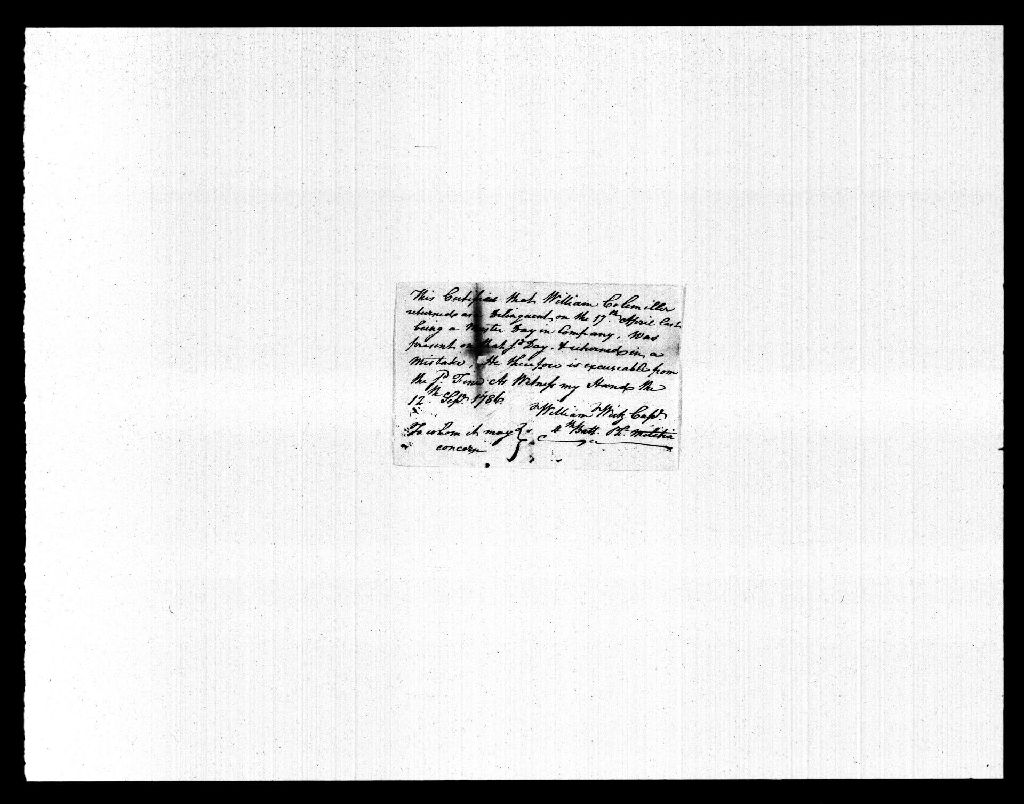 This Certifies that William Colemiller
returned as a Delinquent on the 17th April Last
being a Muster Day in Company, was
present on that sd. Day & returned in, a
mistake, He therefore is excuseable from
the sd. Fine As Witness my Hand the
12th Sepr. 1786
William Wirtz Capt.
To whom it may
Batt. Ph. Militia
concern